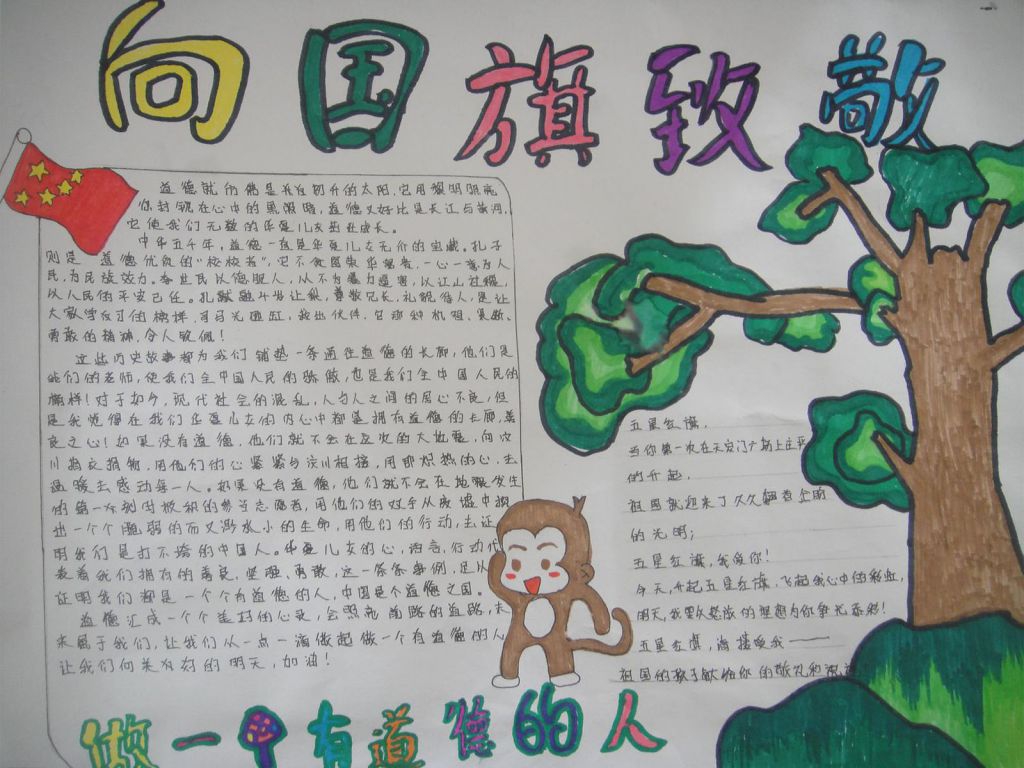 向国旗致敬
道德就仿佛是我们初升的太阳,它用黎明照亮
你封锁在心中的黑洞暗,道德又好比是长江与黄河,
它使我们无数的华夏儿女茁壮成长。
中华五千年,道德一直是华夏儿女无价的宝藏。孔子
则是道德优良的"佼佼者",它不贪图荣华富贵,一心一意为人
民,为民族效力。李世民以德服人,从不为暴力,以江山社稷,
以人民的平安己任。孔融融让梨,尊敬兄长,礼貌待人,是让
大家学习的榜样,司马光砸缸,救出伙伴,它那种机智、果断、
勇敢的精神,令人敬佩!
这些历史故事都为我们铺垫一条通往道德的长廊,他们是
我们的老师,使我们全中国人民的骄傲,也是我们全中国人民的
榜样!对于如今,现代社会的混乱,人与人之间的居心不良,但
是我觉得在我们华夏儿女的内心中都是拥有道德的长廊,善
良之心!如果没有道德,他们就不会在汶川的大地震,向汶
川捐款捐物,用他们的心紧紧与汶川相握,用那炽热的心,去
温暖去感动每一人。如果没有道德,他们就不会在地震发生
的第一时间时积极的参与志愿者,用他们的双手从废墟中救
出一个个脆弱的而又渺小的生命,用他们的行动,去证
明我们是打不垮的中国人。华夏儿女的心,语言,行动代
表着我们拥有的善良、坚强、勇敢,这一条条事例,足以
证明我们都是一个个有道德的人,中国是个道德之国。
道德汇成一个个美好的心灵,会照亮前路的道路,未
来属于我们,让我们从一点一滴做起做一个有道德的人
让我们向美好的明天,加油!
五星红旗,
当你第一次在天安门广场上庄严
的升起,
祖国就迎来了久久翻查企盼
的光明;
五星红旗,我爱你!
今天,升起五星红旗,飞起我心中的彩虹,
明天,我要以整放的理想为你争光添彩!
五星红旗,请接受我——
祖国的孩子献给你的敬礼和祝
做一个有道德的人